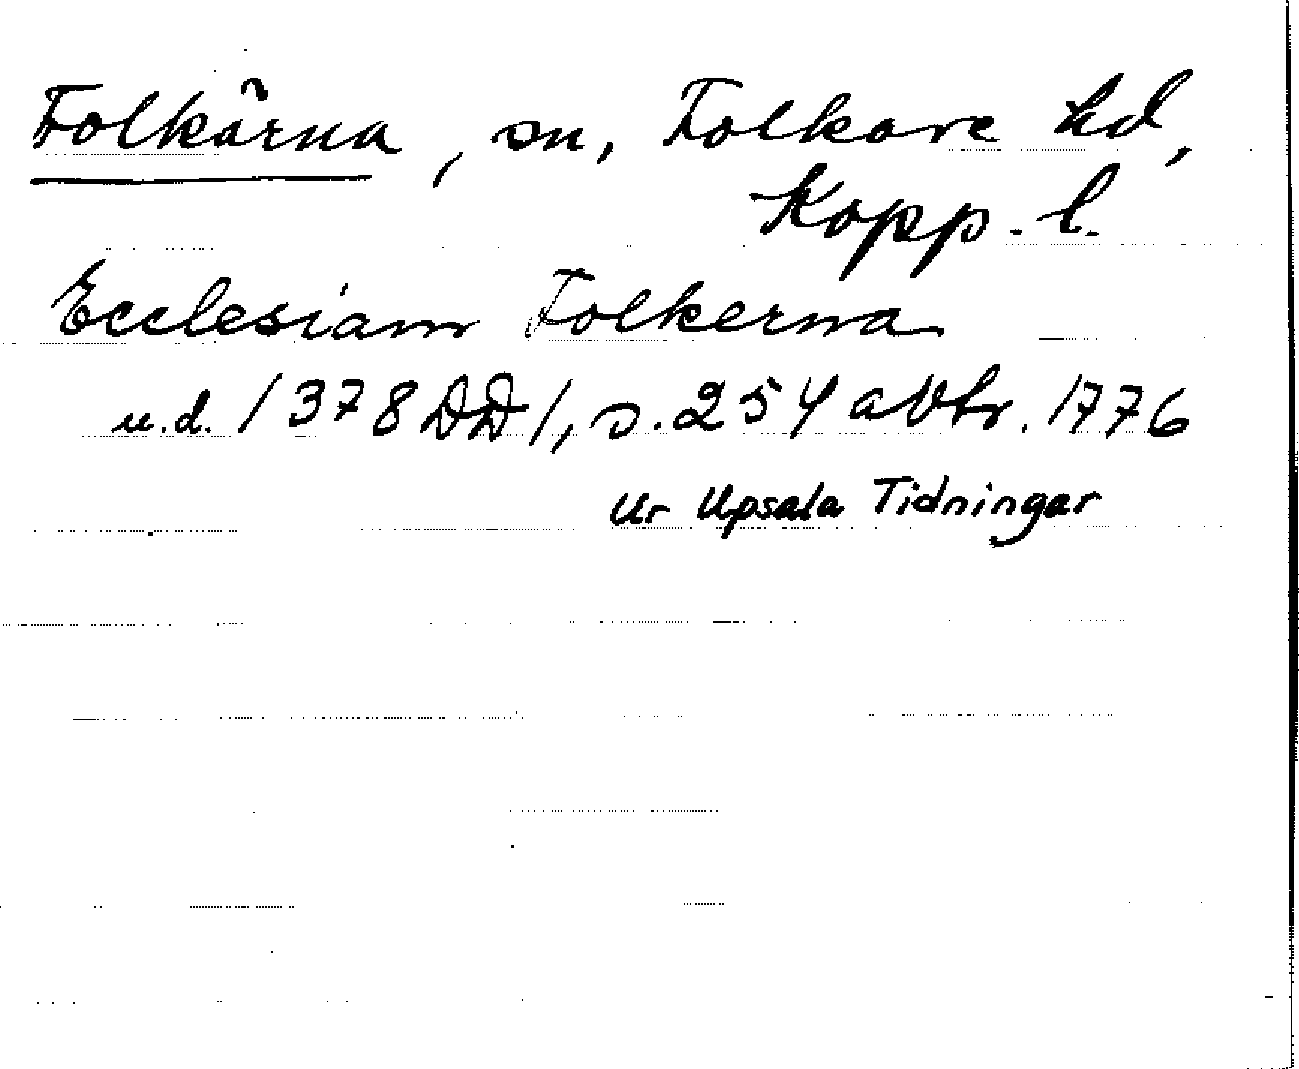 Folkärna, sn, Folkare hd,
Kopp. l.
Ecclesiam Folkerna
u.d. /378 DD/, s. 254 avtr. 1776
Ur Upsala Tidningar